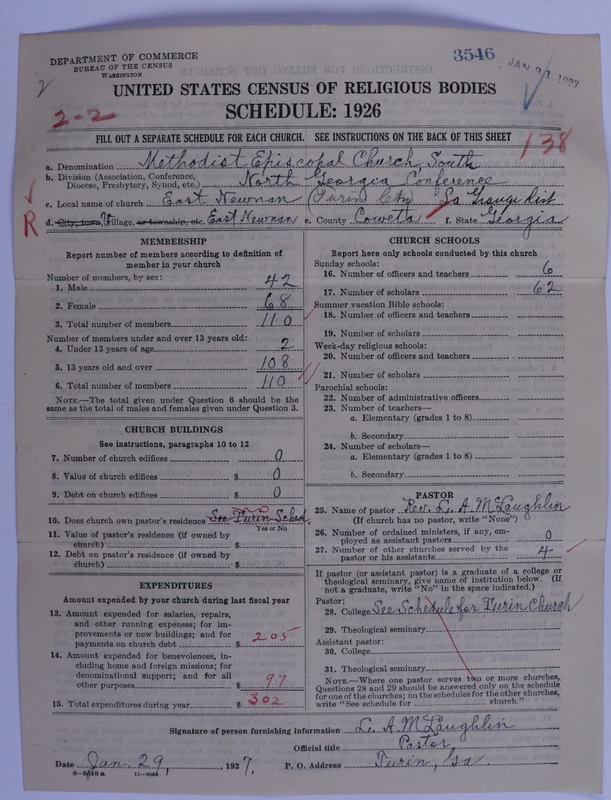 DEPARTMENT OF COMMERCE
BUREAU OF THE CENSUS
WASHINGTON
3546
JAN 31 1927
2
UNITED STATES CENSUS OF RELIGIOUS BODIES
SCHEDULE: 1926
2-2
FILL OUT A SEPARATE SCHEDULE FOR EACH CHURCH. SEE INSTRUCTIONS ON THE BACK OF THIS SHEET
138
a. Denomination Methodist Episcopal Church, South
b. Division (Association, Conference, Diocese, Presbytery, Synod, etc.) North Georgia Conference
c. Local name of church East Newnan (Turin Chg) La Grange Dist
R
d. City, town, Village, or township, etc. East Newnan e. County Coweta f. State Georgia
MEMBERSHIP
Report number of members according to definition of
member in your church
Number of members, by sex:
1. Male 42
2. Female 68
3. Total number of members 110
Number of members under and over 13 years old:
4. Under 13 years of age 2
5. 13 years old and over 108
6. Total number of members 110
NOTE.—The total given under Question 6 should be
same as the total of males and females given under Question 3.
CHURCH BUILDINGS
See instructions, paragraphs 10 to 12
7. Number of church edifices 0
8. Value of church edifices $ 0
9. Debt on church edifices $ 0
10. Does church own pastor's residence See Turin Sched.
Yes or No
11. Value of pastor's residence (if owned by
church) $
12. Debt on pastor's residence (if owned by
church) $
EXPENDITURES
Amount expended by your church during last fiscal year
13. Amount expended for salaries, repairs,
and other running expenses; for im-
provements or new buildings; and for
payments on church debt $ 205
14. Amount expended for benevolences, in-
cluding home and foreign missions; for
denominational support; and for all
other purposes $ 97
15. Total expenditures during year $ 302
CHURCH SCHOOLS
Report here only schools conducted by this church
Sunday schools:
16. Number of officers and teachers 6
17. Number of scholars 62
Summer vacation Bible schools:
18. Number of officers and teachers
19. Number of scholars
Week-day religious schools:
20. Number of officers and teachers
21. Number of scholars
Parochial schools:
22. Number of administrative officers
23. Number of teachers—
a. Elementary (grades 1 to 8)
b. Secondary
24. Number of scholars—
a. Elementary (grades 1 to 8)
b. Secondary
PASTOR
25. Name of pastor Rev. L. A. McLaughlin
(If church has no pastor, write "None")
26. Number of ordained ministers, if any, em-
ployed as assistant pastors 0
27. Number of other churches served by the
pastor or his assistants 4
If pastor (or assistant pastor) is a graduate of a college or
theological seminary, give name of institution below. (If
not a graduate, write "No" in the space indicated.)
Pastor:
28. College See Schedule for Turin Church
29. Theological seminary
Assistant pastor:
30. College
31. Theological seminary
NOTE.—Where one pastor serves two or more churches,
Questions 28 and 29 should be answered only on the schedule
for one of the churches; on the schedules for the other churches,
write "See schedule for church."
Signature of person furnishing information L. A. McLaughlin
Official title Pastor
Date Jan. 29, 1927. P. O. Address Turin, Ga.